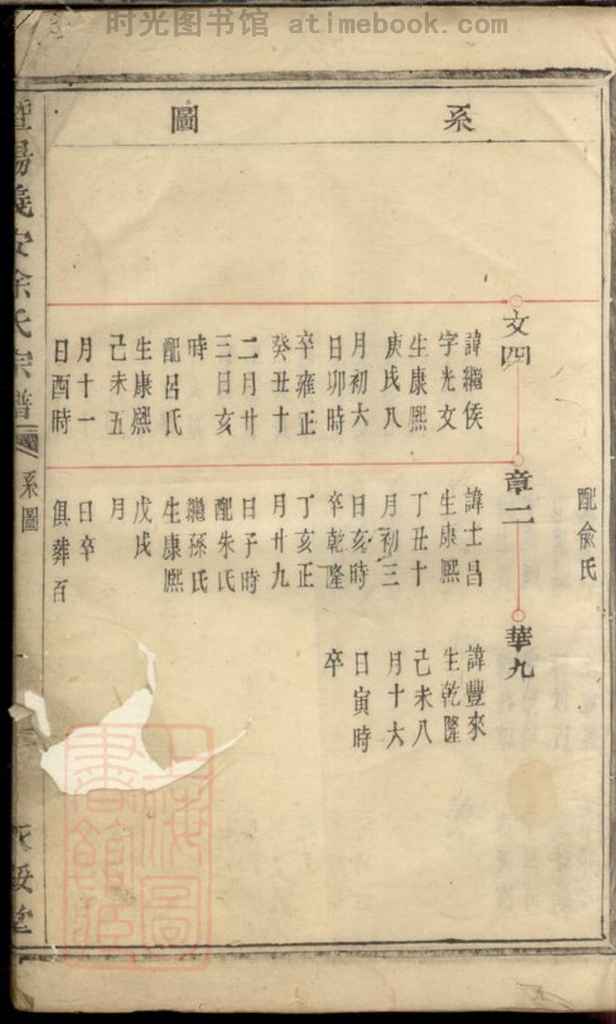 时光图书馆 atimebook.com
系圖
配俞氏
文四
諱繼侯
字光文
生康熙
庚戌八
月初六
日卯時
卒雍正
癸丑十
二月廿
三日亥
時
配呂氏
生康熙
己未五
月十一
日酉時
章二
諱士昌
生康熙
丁丑十
月初三
日亥時
卒乾隆
丁亥正
月廿九
日子時
配朱氏
繼孫氏
生康熙
戊戌
月
日卒
俱葬百
華九
諱豐來
生乾隆
己未八
月十六
日寅時
卒
暨陽義安徐氏宗譜
系圖
上海圖書館藏